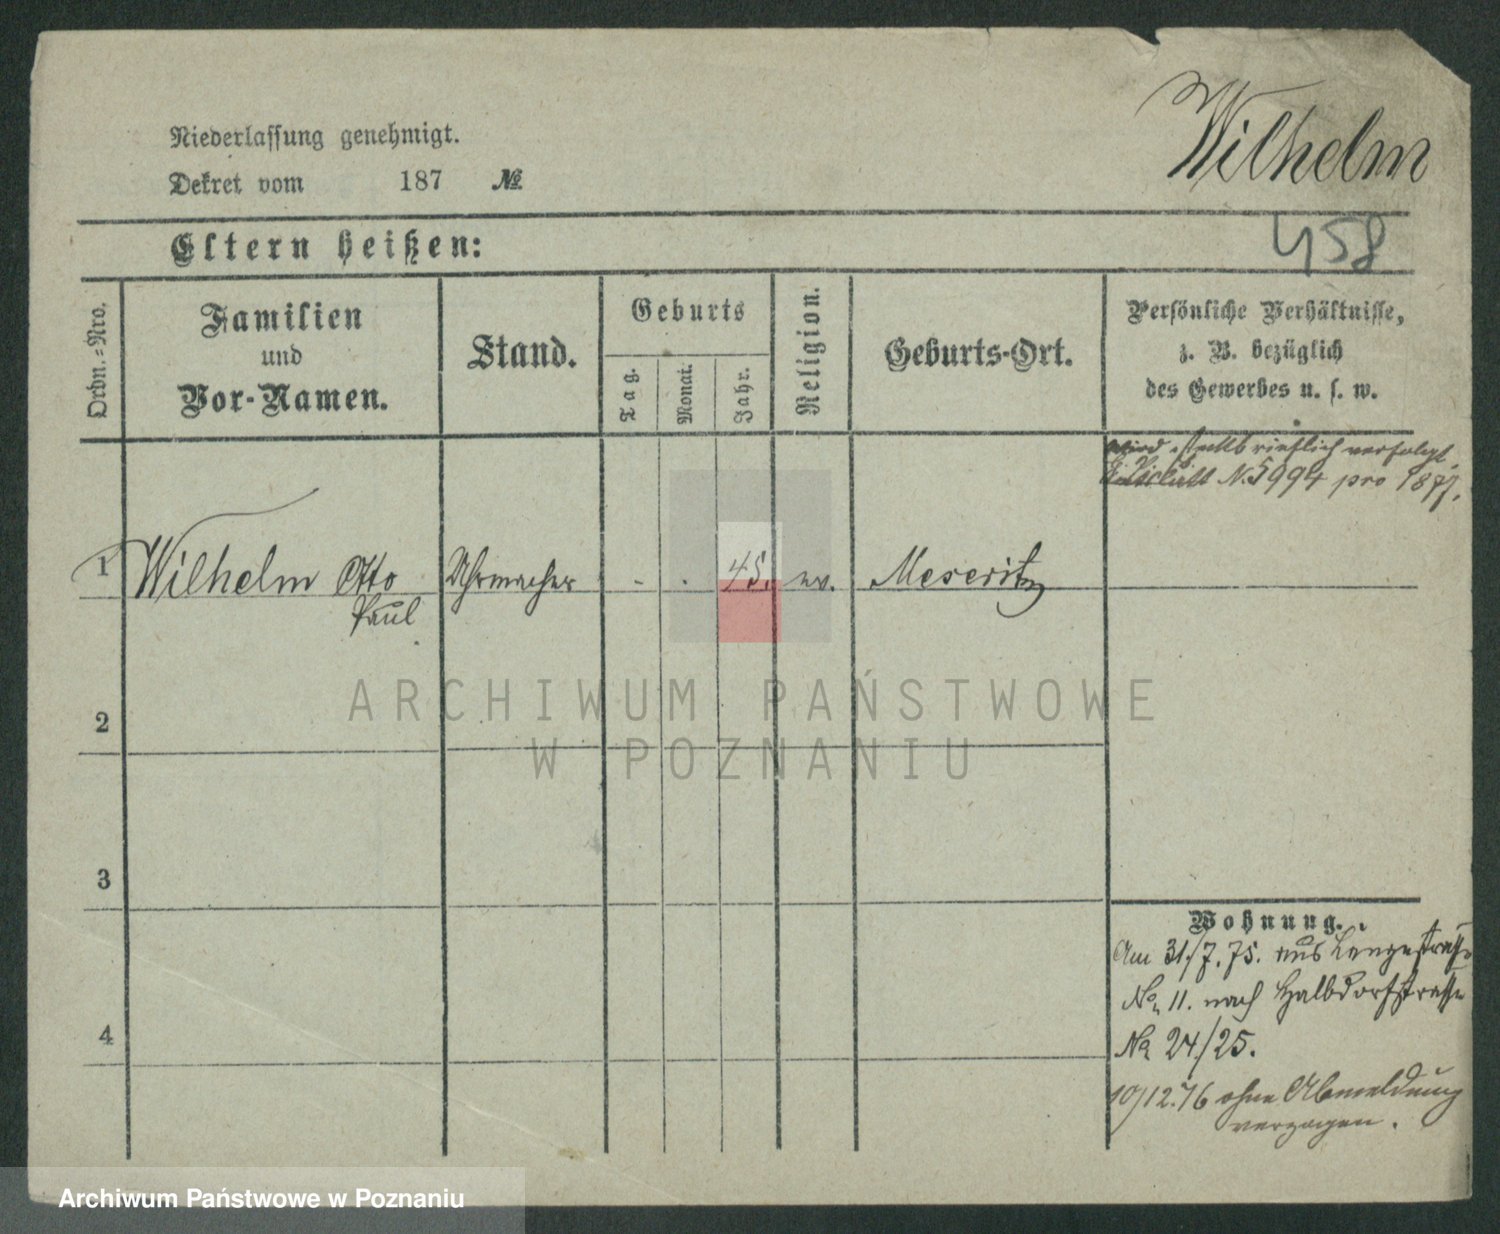 Wilhelm
Niederlassung genehmigt.
Dekret vom 187 №
458
Eltern heißen:
Ordn.=Nro.
Familien
und
Vor-Namen.
Stand.
Geburts
Tag.
Monat.
Jahr.
Religion.
Geburts-Ort.
Persönliche Verhältnisse,
z. B. bezüglich
des Gewerbes u. s. w.
wird steckbrieflich verfolgt.
N. 5994 pro 1877.
1 Wilhelm Otto Uhrmacher - . 45. ev. Meseritz
Paul
2
ARCHIWUM PAŃSTWOWE
W POZNANIU
3
Wohnung.
Am 31/7. 75. aus Langestrasse
No 11. nach Halbdorfstrasse
No 24/25.
4
10/12.76 ohne Abmeldung
verzogen.
Archiwum Państwowe w Poznaniu